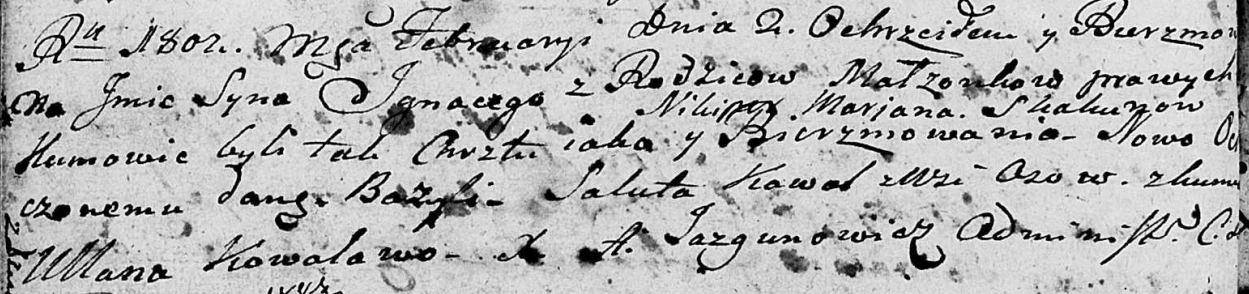 Ru 1802. Mga Februaryi Dnia 2. Ochrzciłem y Bierzmow
na Jmie Syna Jgnacego z Rodzicow Małzonkow prawych
Nikipor Marjana. Skakunow
Kumowie byli tak Chrztu iako y Bierzmowania Nowo
czonemu dang. Bazyli Saluta Kowal zWsi Osow. zkumo
Ullana Kowalowo X A. Jazgunowicz Administr.